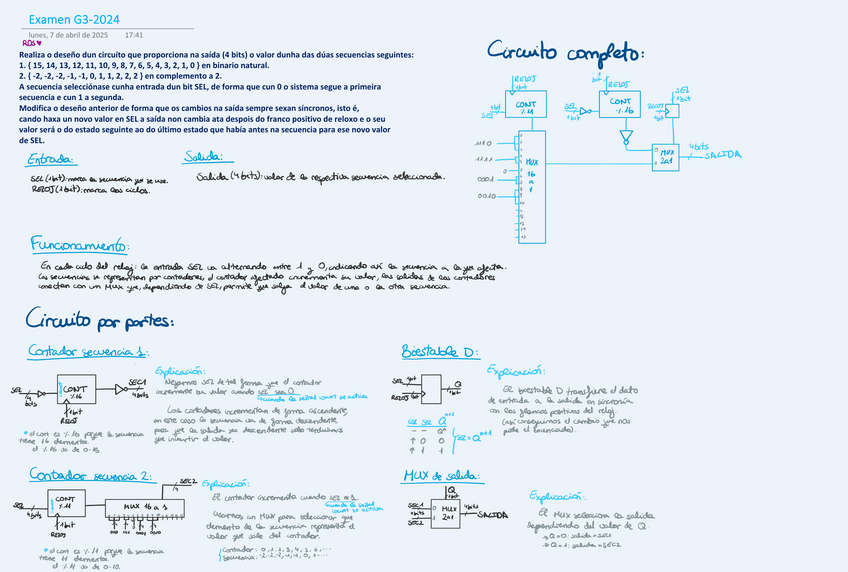 Examen G3-2024
lunes, 7 de abril de 2025 17:41
RDS♥
Realiza o deseño dun circuíto que proporciona na saída (4 bits) o valor dunha das dúas secuencias seguintes:
1. { 15, 14, 13, 12, 11, 10, 9, 8, 7, 6, 5, 4, 3, 2, 1, 0 } en binario natural.
2. { -2, -2, -2, -1, -1, 0, 1, 1, 2, 2, 2 } en complemento a 2.
A secuencia selecciónase cunha entrada dun bit SEL, de forma que cun 0 o sistema segue a primeira
secuencia e cun 1 a segunda.
Modifica o deseño anterior de forma que os cambios na saída sempre sexan síncronos, isto é,
cando haxa un novo valor en SEL a saída non cambia ata despois do franco positivo de reloxo e o seu
valor será o do estado seguinte ao do último estado que había antes na secuencia para ese novo valor
de SEL.
Entrada:
SEL (1bit): marca la secuencia que se use.
RELOJ (1bit): marca los ciclos.
Salida:
Salida (4 bits): valor de la respectiva secuencia seleccionada.
Funcionamiento:
En cada ciclo del reloj: la entrada SEL va alternando entre 1 y 0, indicando así la secuencia a la que afecta.
Las secuencias se representan por contadores, el contador afectado incrementa su valor, las salidas de los contadores
conectan con un MUX que, dependiendo de SEL, permite que salga el valor de una o la otra secuencia.
Circuito completo:
RELOJ
1bit
SEL
1bit
CONT
%11
1110
1111
0
0001
0010
MUX
16
a
1
1bit
RELOJ
SEL
1bit
CONT
%16
SEL
1bit
RELOJ
MUX
2a1
4bits
SALIDA
Circuito por partes:
Contador secuencia 1:
SEL
4
bits
CONT
%16
1bit
RELOJ
SEC1
4bits
* el cont es %16 porque la secuencia
tiene 16 elementos.
el %16 va de 0-15.
Explicación:
Negamos SEL de tal forma que el contador
incremente su valor cuando SEL sea 0.
(cuando la señal count se activa
Los contadores incrementan de forma ascendente,
en este caso la secuencia va de forma descendente,
para que la salida sea descendente solo tendríamos
que invertir el valor.
Contador secuencia 2:
SEL
4bits
CONT
%11
1bit
RELOJ
MUX 16 a 1
SEC2
4
* el cont es %11 porque la secuencia
tiene 11 elementos.
el %11 va de 0-10.
Explicación:
El contador incrementa cuando SEL es 1.
(cuando la señal
count se activa
Usamos un MUX para seleccionar que
elemento de la secuencia representa el
valor que sale del contador.
Contador: 0, 1, 2, 3, 4, 5, 6, ...
Secuencia: -2, -2, -2, -1, -1, 0, 1...
Biestable D:
SEL
RELOJ
1bit
Q
1bit
CLK SEL Qⁿ⁺¹
- - Qⁿ
↑ 0 0
↑ 1 1
SEL = Qⁿ⁺¹
Explicación:
El biestable D transfiere el dato
de entrada a la salida en sincronía
con los flancos positivos del reloj.
(así conseguimos el cambio que nos
pide el enunciado).
MUX de salida:
Q
1bit
SEC1
4bits
SEC2
MUX
2a1
4bits
SALIDA
Explicación:
El MUX selecciona la salida
dependiendo del valor de Q.
→ Q=0: salida=SEC1
→ Q=1: salida=SEC2